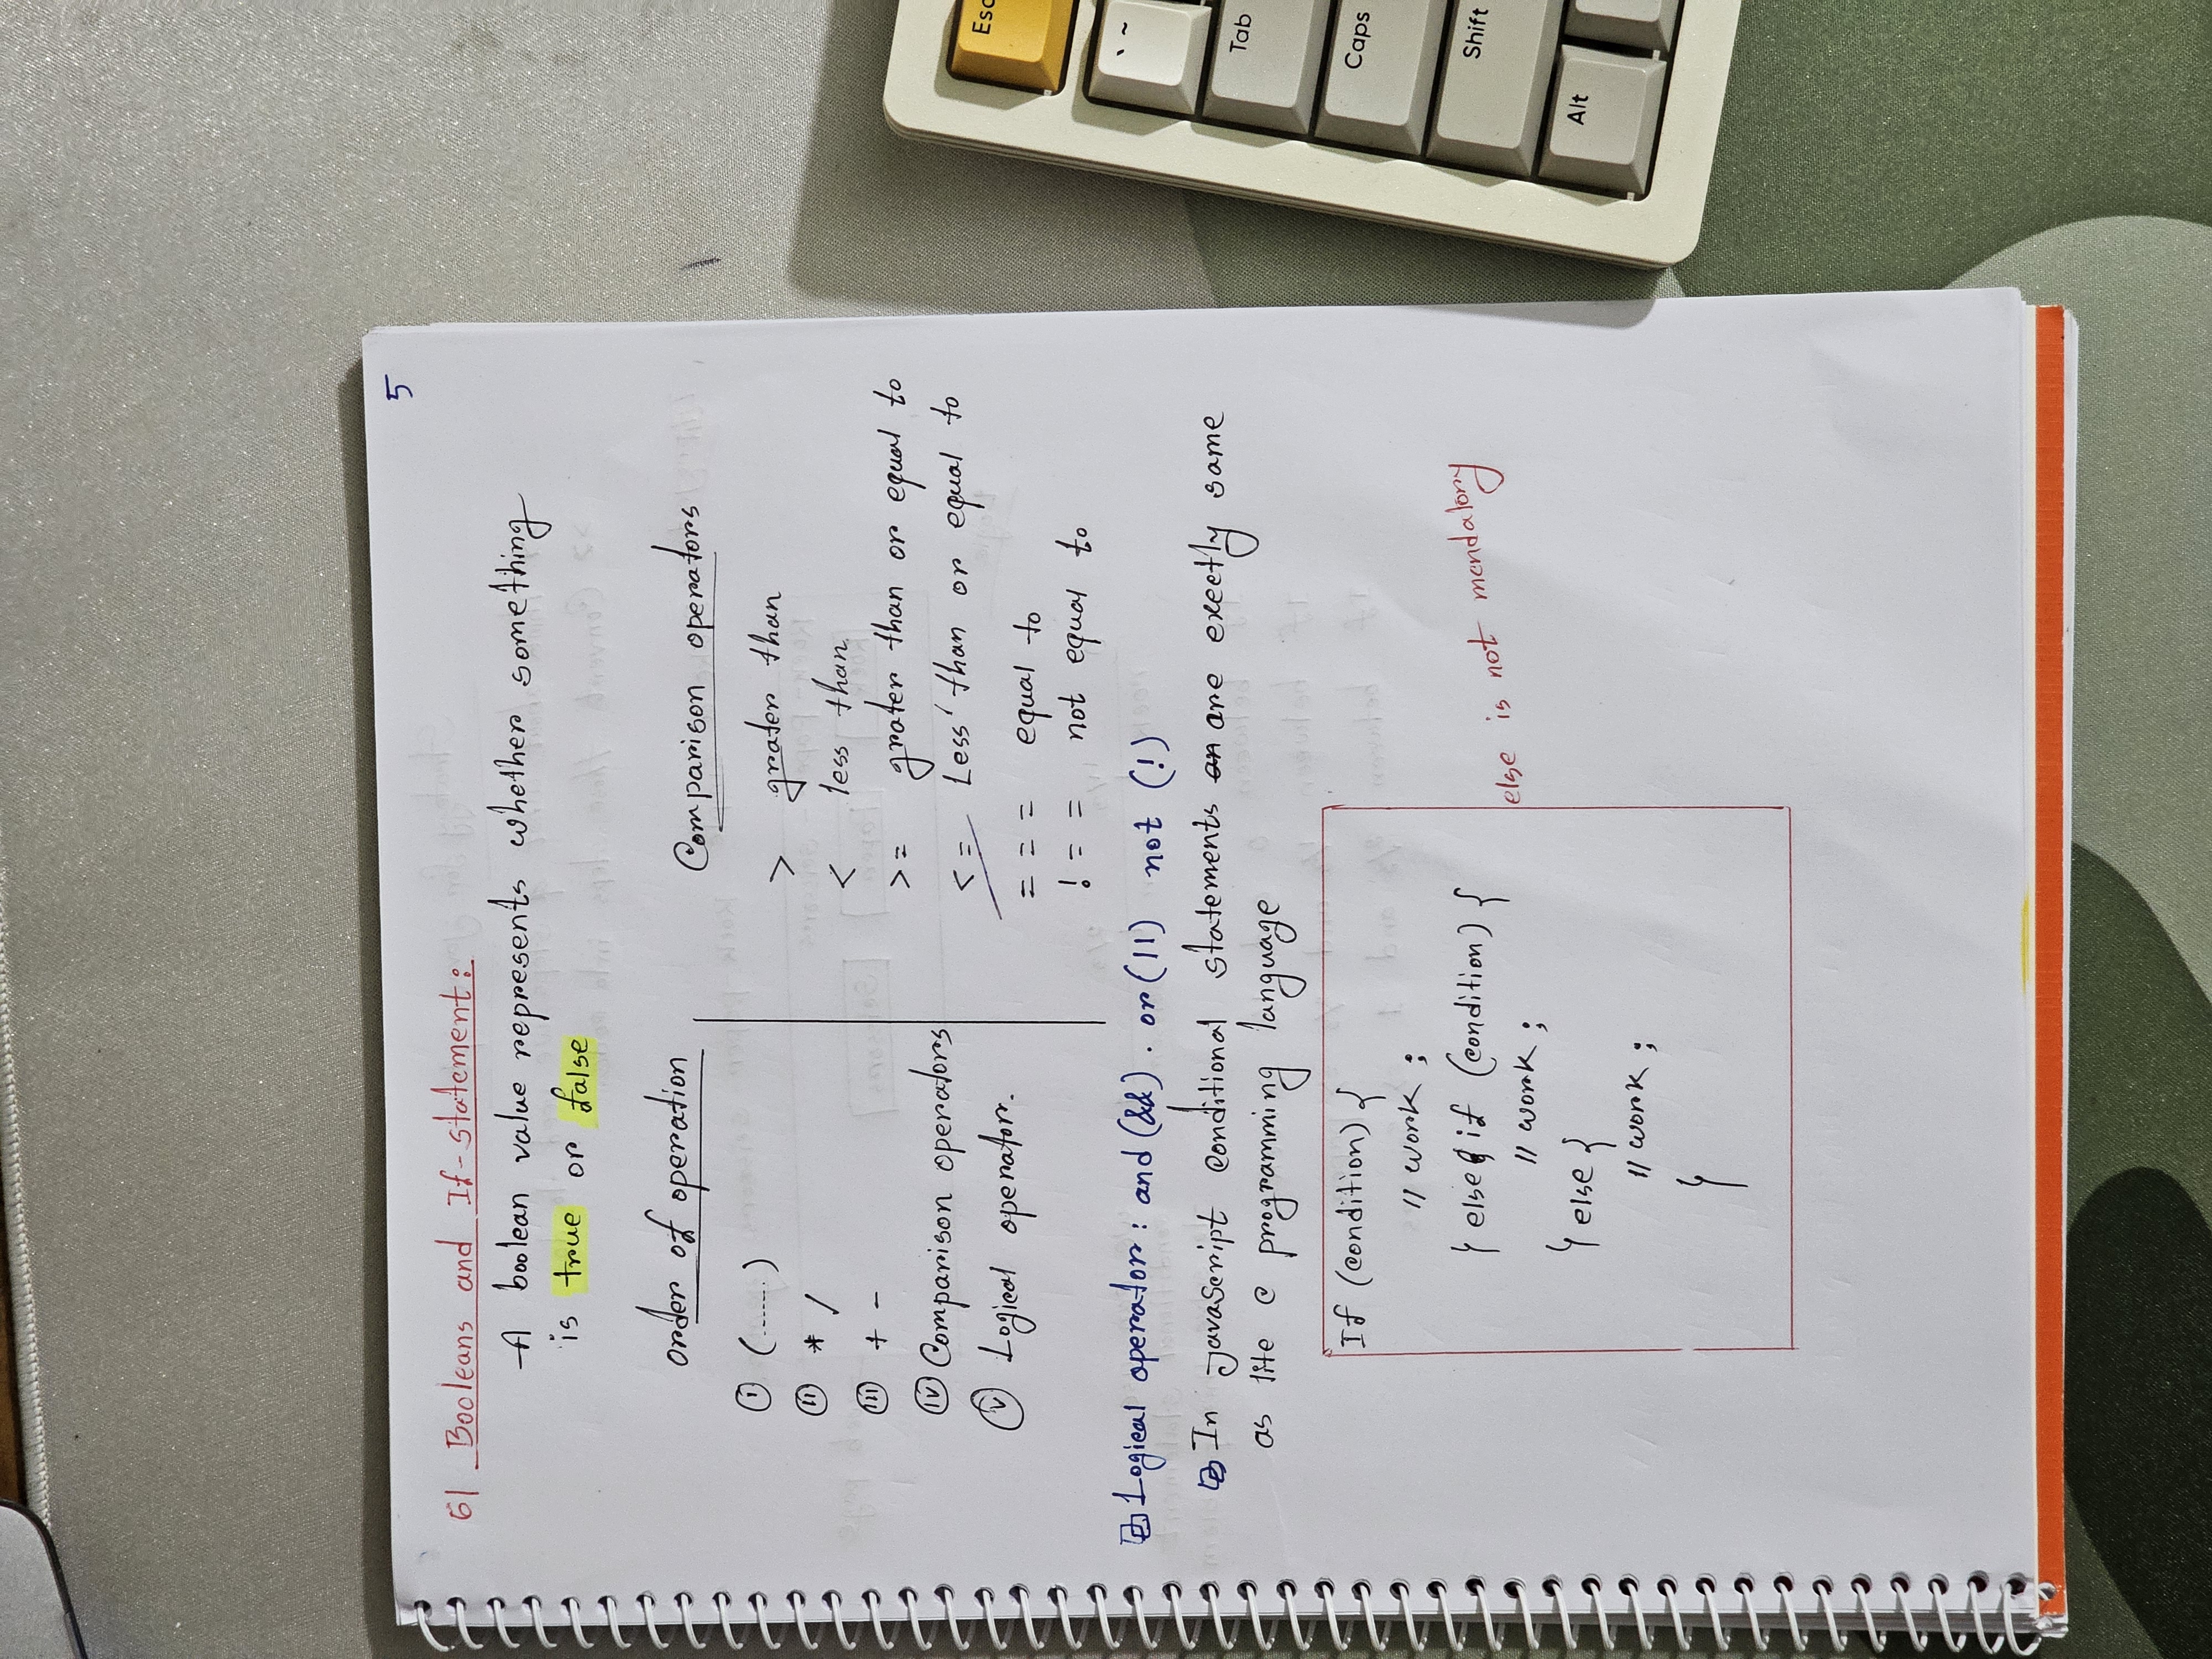 5
6| Booleans and If-statement:
A boolean value represents whether something
is true or false
Order of operation
i (......)
ii * /
iii + -
iv Comparison operators
v Logical operator.
Comparison operators
> grater than
< less than
>= grater than or equal to
<= Less than or equal to
=== equal to
!== not equal to
Logical operator: and (&&) . or (||) not (!)
In JavaScript conditional statements an are exectly same
as lite C programming language
If (condition) {
// work ;
} else if (condition) {
// work ;
} else {
// work ;
}
else is not mendatory
Esc
` ~
Tab
Caps
Shift
Alt